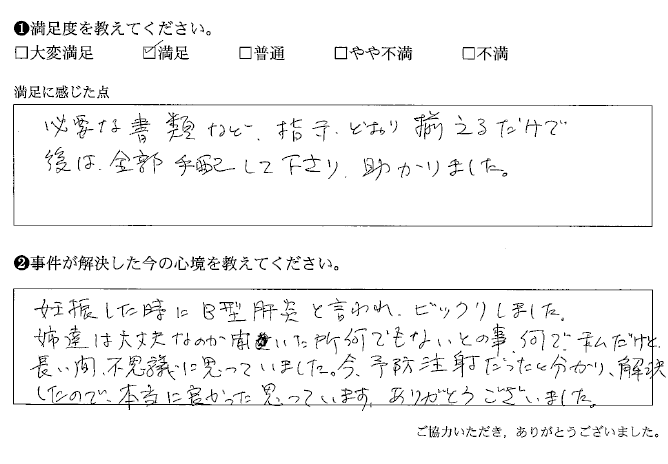 ❶満足度を教えてください。
□大変満足 ☑満足 □普通 □やや不満 □不満
満足に感じた点
必要な書類など、指示どおり揃えるだけで
後は、全部手配して下さり、助かりました。
❷事件が解決した今の心境を教えてください。
妊娠した時にB型肝炎と言われ、ビックリしました。
姉達は大丈夫なのか聞いた所何でもないとの事、何で、私だけと、
長い間、不思議に思っていました。今、予防注射だったと分かり、解決
したので、本当に良かった思っています。ありがとうございました。
ご協力いただき，ありがとうございました。